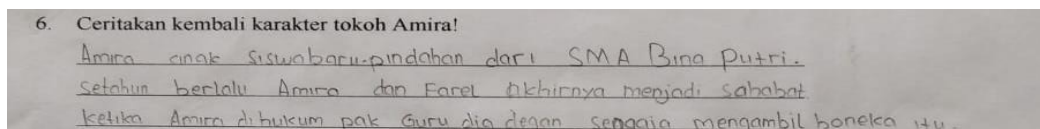 6. Ceritakan kembali karakter tokoh Amira!
Amira anak siswabaru-pindahan dari SMA Bina Putri.
Setahun berlalu Amira dan Farel Akhirnya menjadi sahabat
ketika Amira dihukum pak Guru dia degan sengaja mengambil boneka itu.